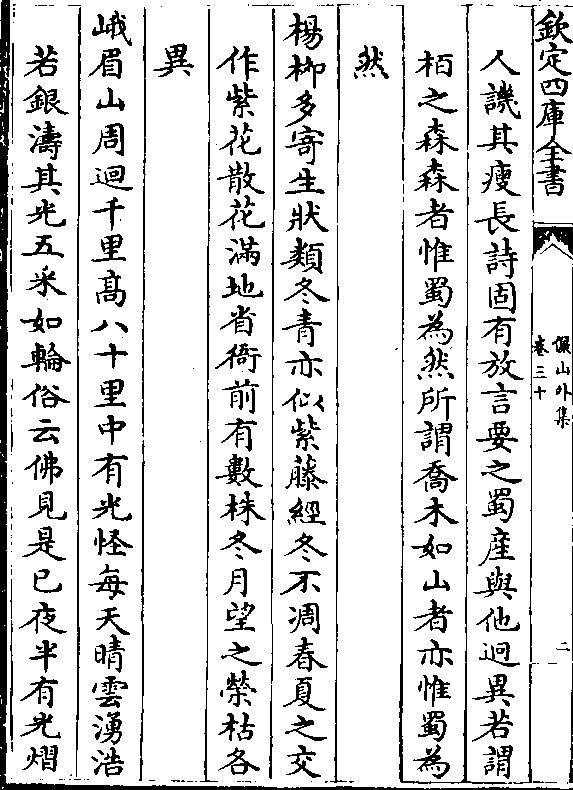 欽定四庫全書
儼山外集
卷三十
二
人譏其瘦長詩固有放言要之蜀産與他迥異若謂
栢之森森者惟蜀為然所謂喬木如山者亦惟蜀為
然
楊柳多寄生狀類冬青亦似紫藤經冬不凋春夏之交
作紫花散花滿地省衙前有數株冬月望之榮枯各
異
峨眉山周迴千里髙八十里中有光怪每天晴雲湧浩
若銀濤其光五采如輪俗云佛見是已夜半有光熠